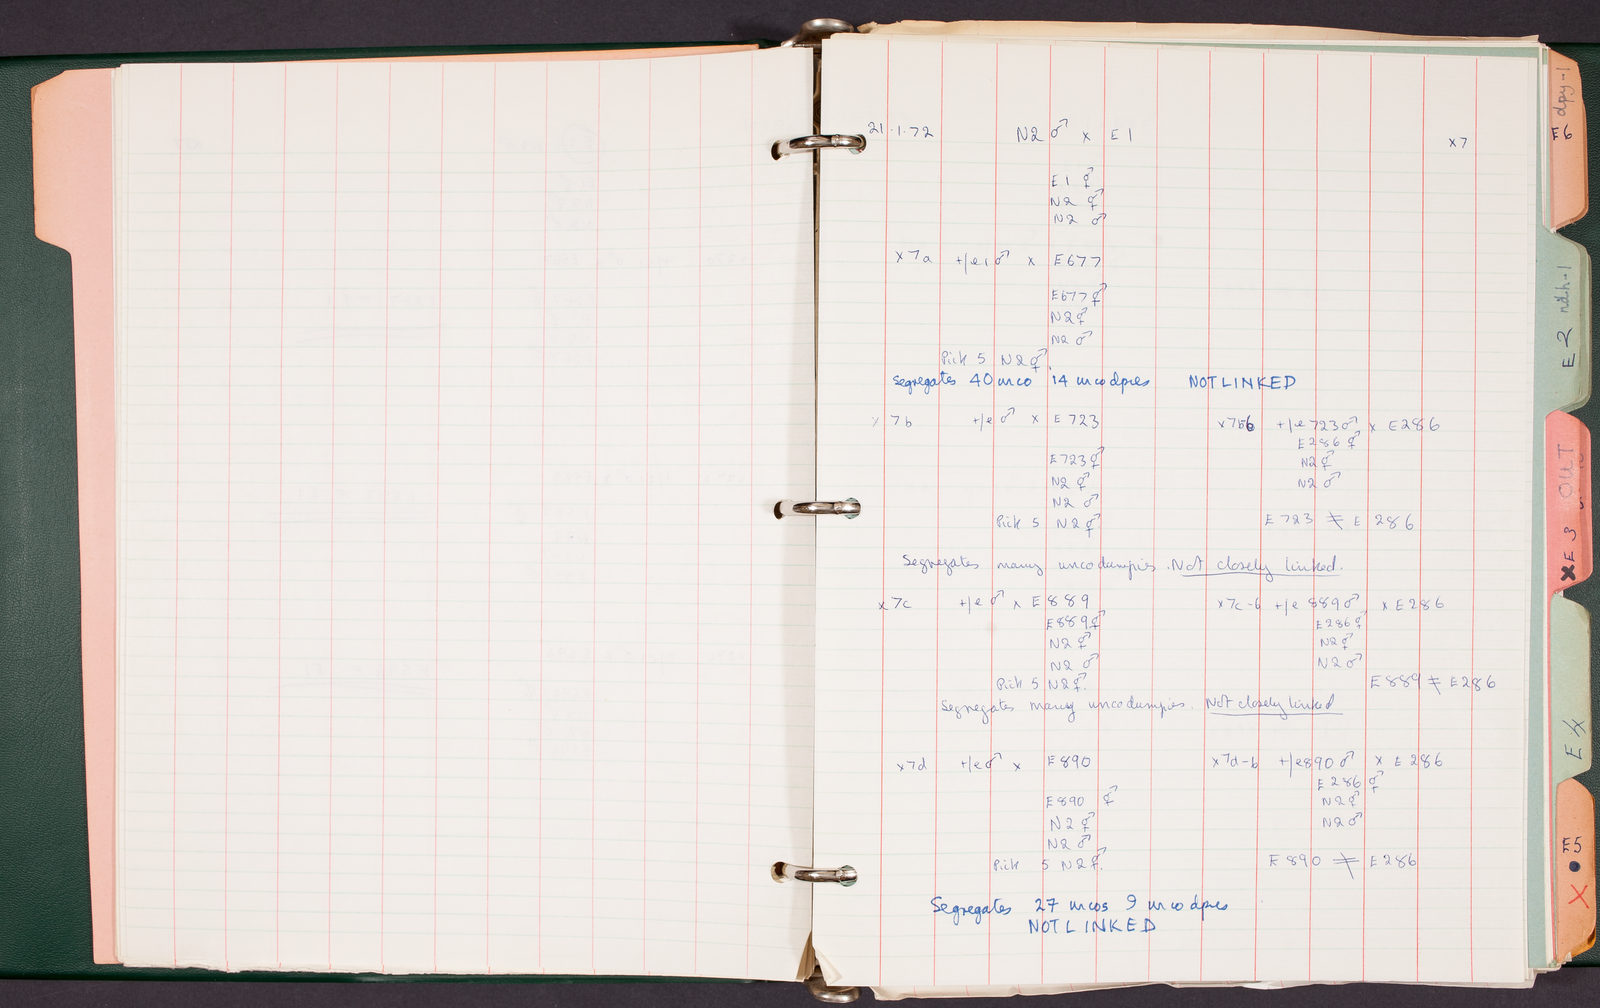 21.1.72 N2 ♂ x E1 x7
E1 ⚥
N2 ⚥
N2 ♂
x7a +/e1 ♂ x E677
E677 ⚥
N2 ⚥
N2 ♂
Pick 5 N2 ⚥
Segregates 40 unco 14 unco dpies NOT LINKED
x 7b +/e ♂ x E723
E723 ⚥
N2 ⚥
N2 ♂
Pick 5 N2 ⚥
x7b-b +/e723 ♂ x E286
E286 ⚥
N2 ⚥
N2 ♂
E723 ≠ E286
Segregates many unco dumpies. Not closely linked.
x7c +/e ♂ x E889
E889 ⚥
N2 ⚥
N2 ♂
Pick 5 N2 ⚥.
x7c-b +/e 889 ♂ x E286
E286 ⚥
N2 ⚥
N2 ♂
E889 ≠ E286
Segregates many unco dumpies. Not closely linked
x7d +/e ♂ x E890
E890 ⚥
N2 ⚥
N2 ♂
Pick 5 N2 ⚥.
x7d-b +/e890 ♂ x E286
E286 ⚥
N2 ⚥
N2 ♂
E890 ≠ E286
Segregates 27 uncos 9 unco dpies
NOT LINKED
E6 dpy-1
E2
XE3 OUT
E4
E5
X